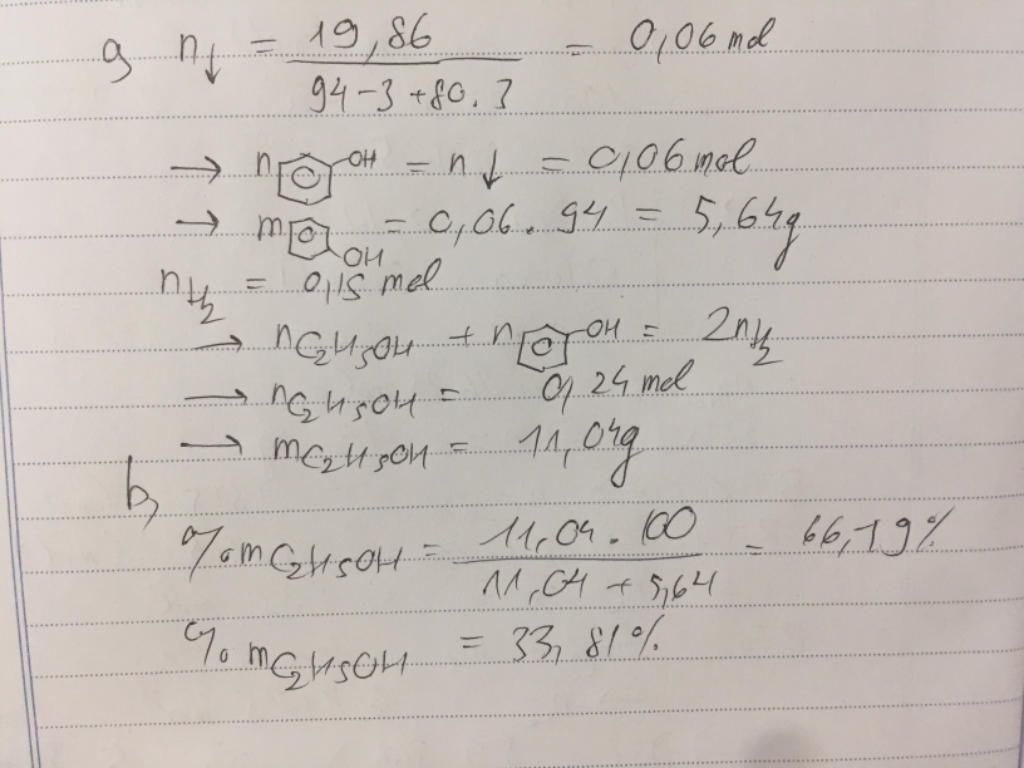 a, n↓ = 19,86 / (94-3+80.3) = 0,06 mol
→ n OH = n↓ = 0,06 mol
→ m OH = 0,06 . 94 = 5,64g
nH2 = 0,15 mol
→ nC2H5OH + n OH = 2nH2
→ nC2H5OH = 0,24 mol
→ mC2H5OH = 11,04g
b,
%mC2H5OH = 11,04 . 100 / (11,04 + 5,64) = 66,19%
%mC2H5OH = 33,81%